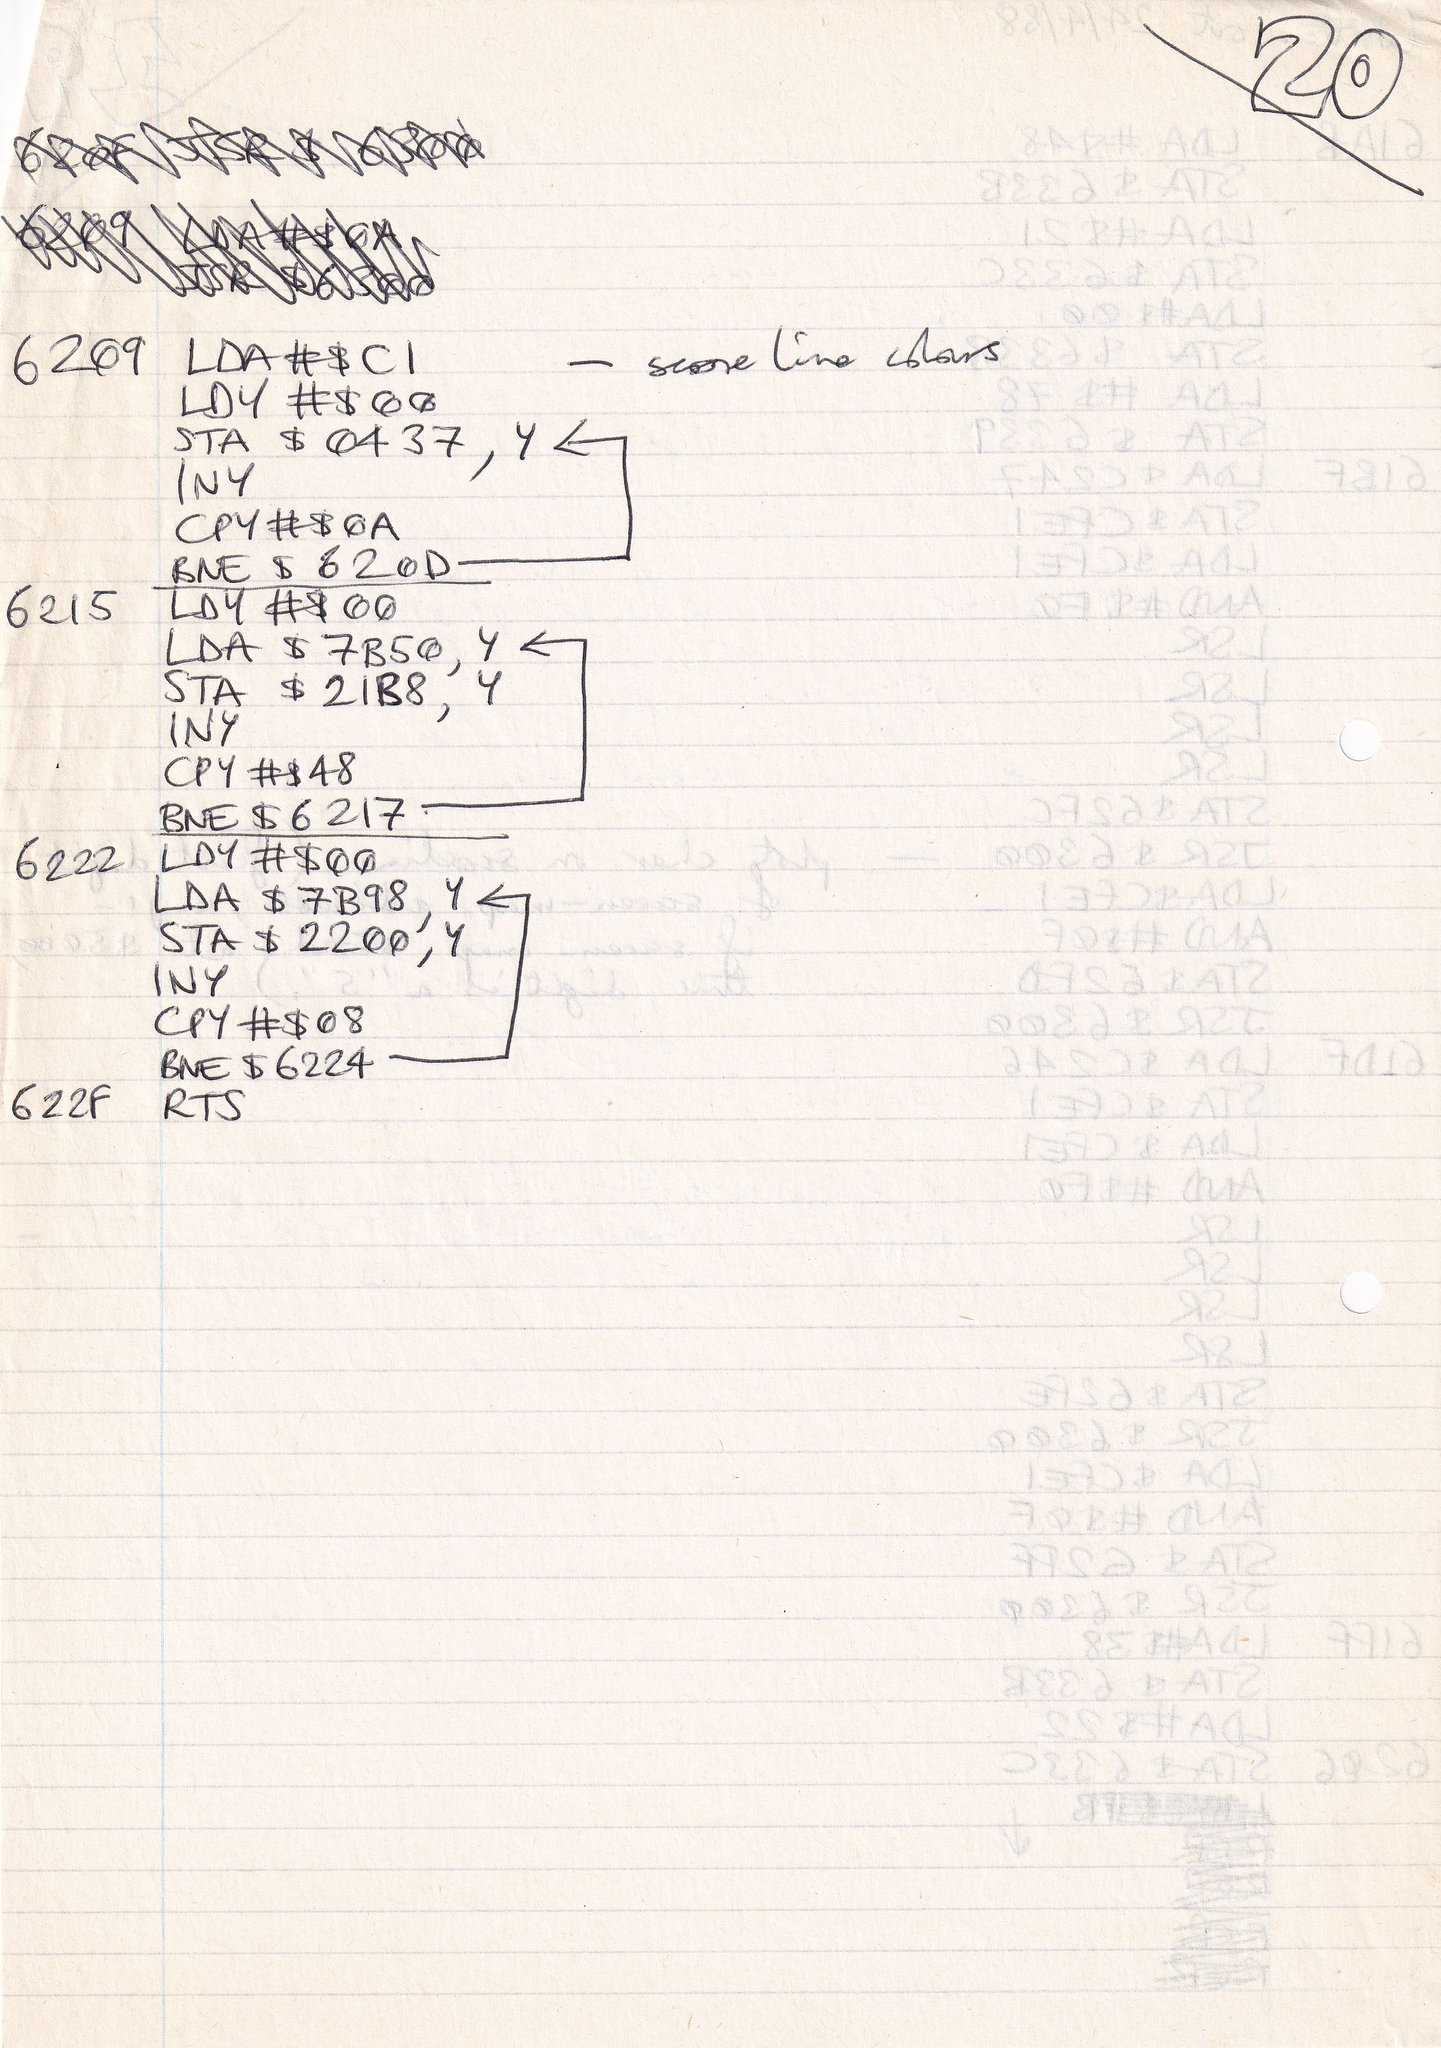 20
620F JSR $ 6300
6209 LDA #$0A
JSR $6300
6209 LDA #$C1 — score line colours
LDY #$00
STA $0437, Y
INY
CPY #$0A
BNE $620D
6215 LDY #$00
LDA $7B50, Y
STA $21B8, Y
INY
CPY #$48
BNE $6217
6222 LDY #$00
LDA $7B98, Y
STA $2200, Y
INY
CPY #$08
BNE $6224
622F RTS